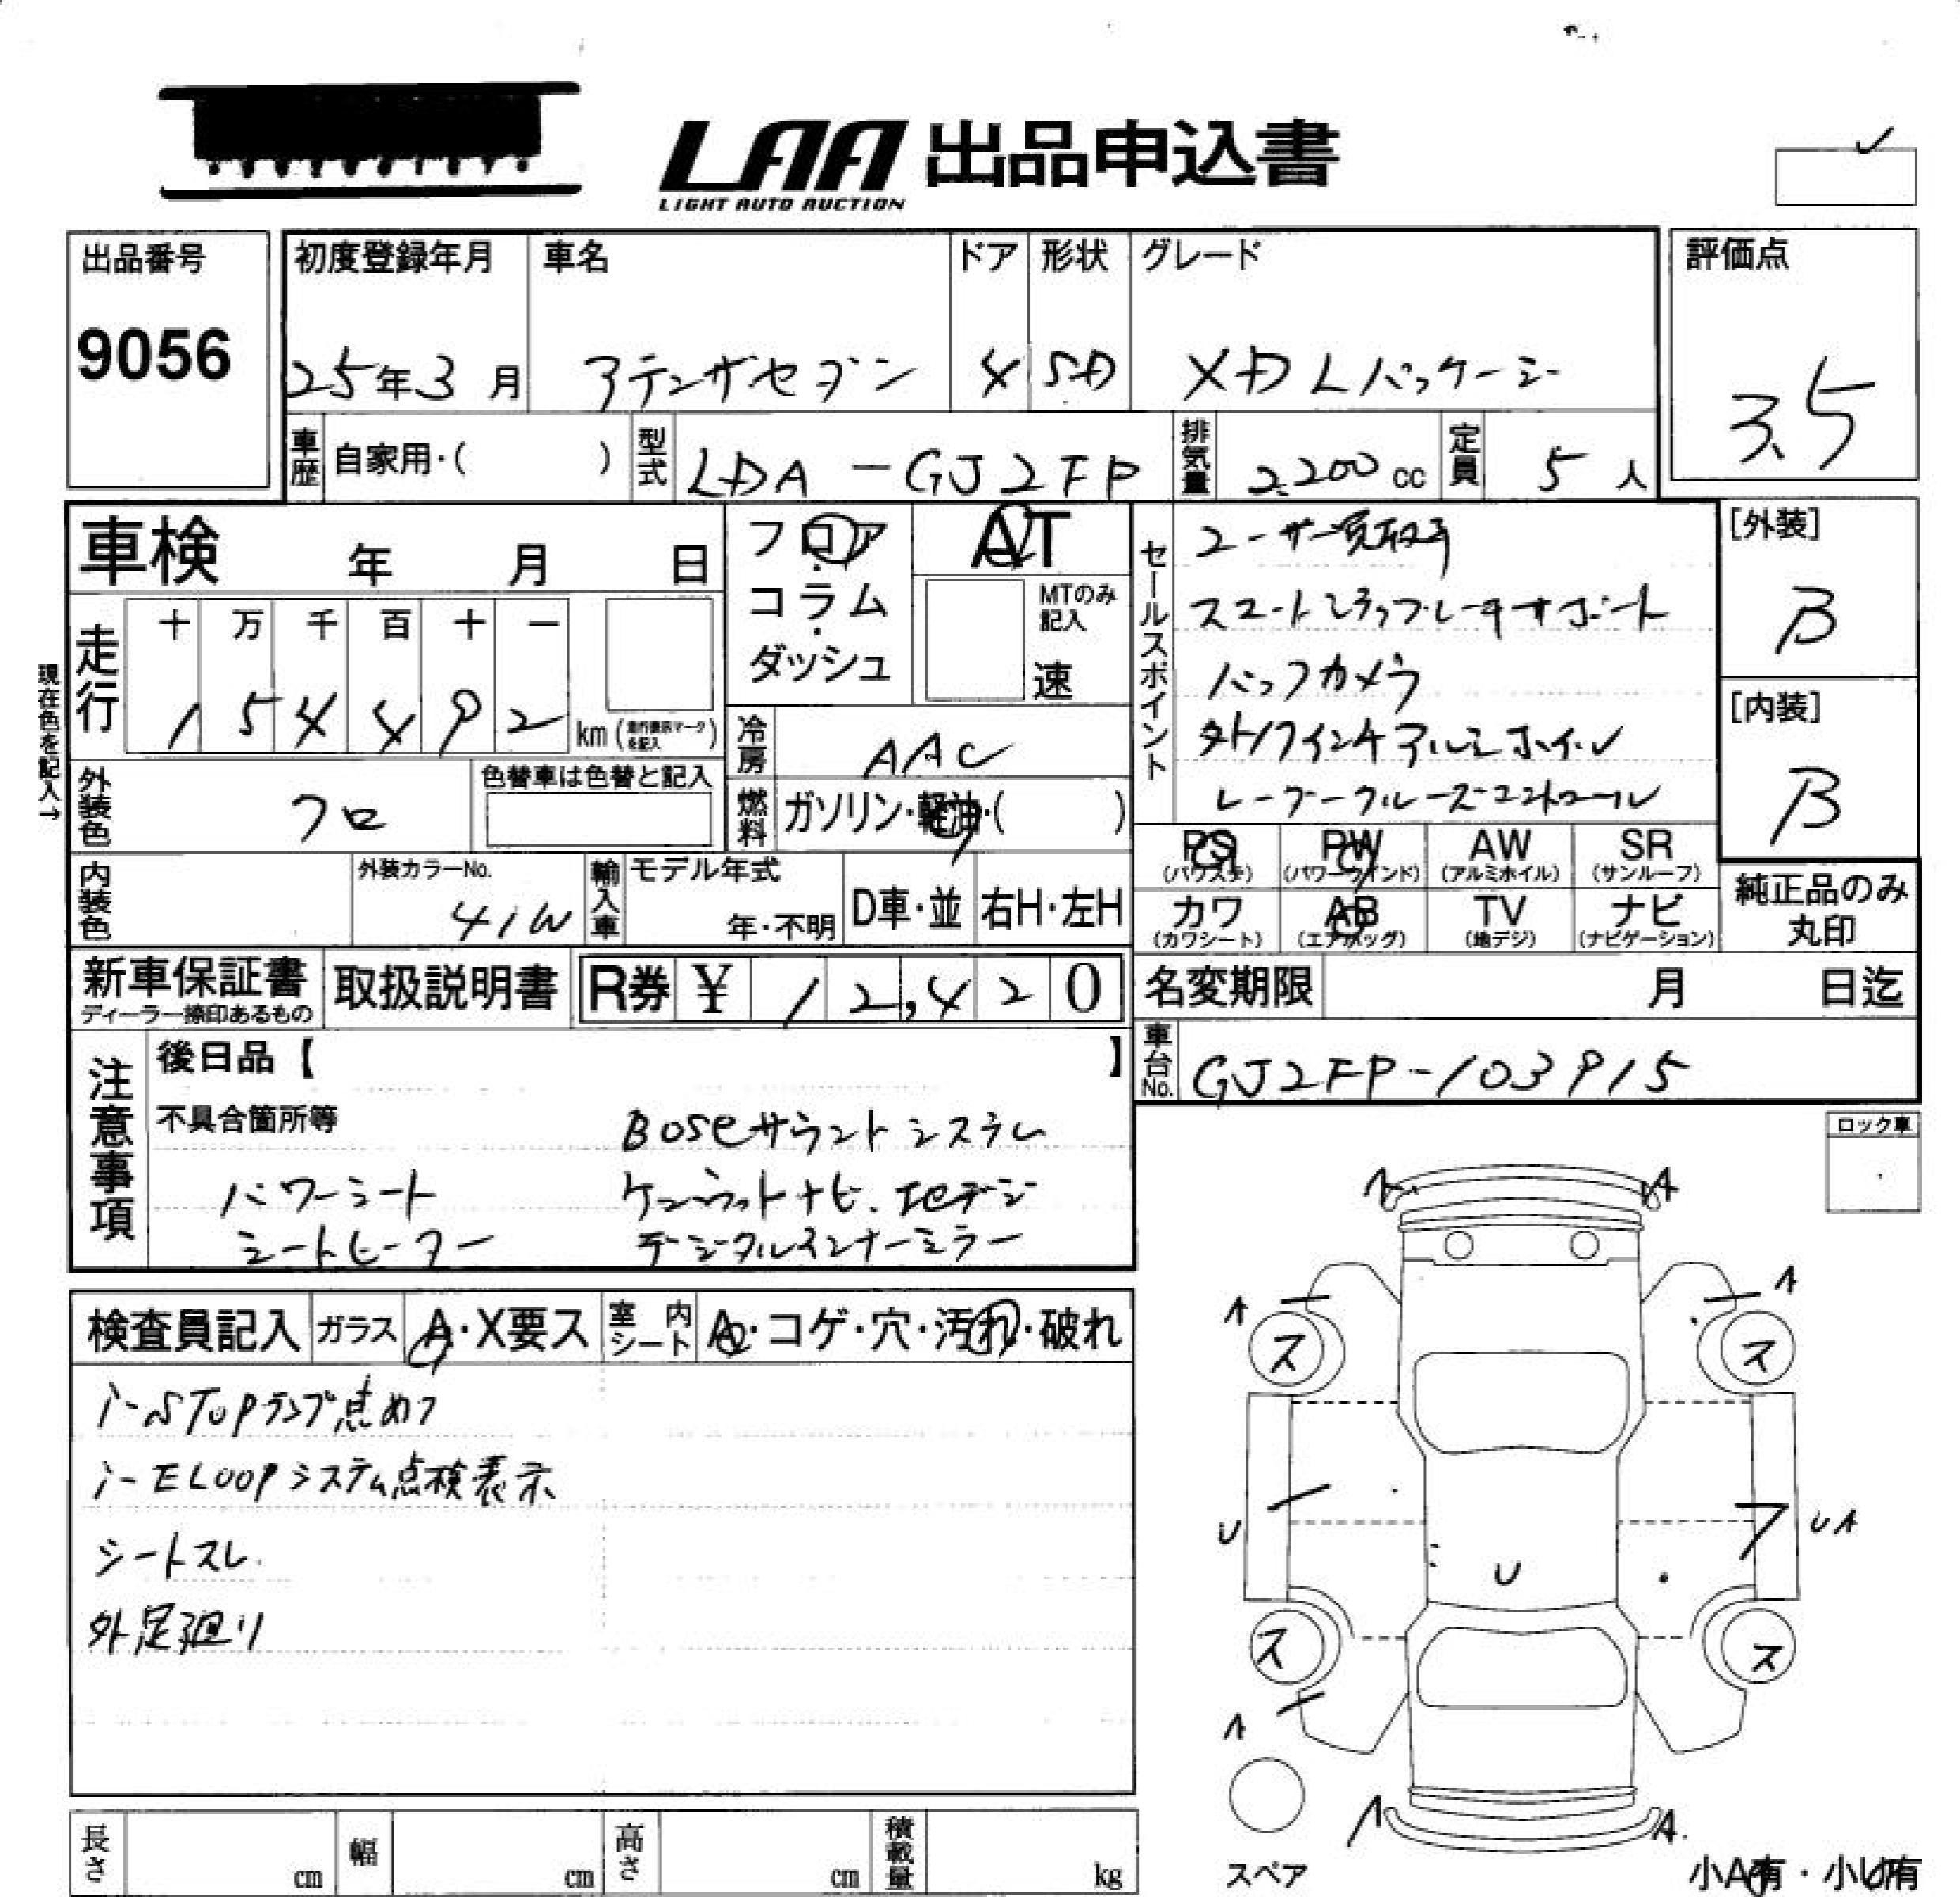 LAA 出品申込書
LIGHT AUTO AUCTION
出品番号
9056
初度登録年月 車名 ドア 形状 グレード 評価点
25年3月 アテンザセダン 4 SD XD Lパッケージ 3.5
車歴 自家用・( ) 型式 LDA-GJ2FP 排気量 2,200cc 定員 5人
車検 年 月 日
フロア・コラム・ダッシュ
AT
MTのみ記入
速
セールスポイント
ユーザー買取車
スマートシティブレーキサポート
バックカメラ
外19インチアルミホイール
レーダークルーズコントロール
[外装]
B
[内装]
B
現在色を記入→
走行 十 万 千 百 十 一
1 5 4 4 9 2 km (走行表示マークを記入)
冷房 AAC
外装色 クロ 色替車は色替と記入
燃料 ガソリン・軽油・( )
PS (パワステ) PW (パワーウインド) AW (アルミホイル) SR (サンルーフ)
カワ (カワシート) AB (エアバッグ) TV (地デジ) ナビ (ナビゲーション)
純正品のみ丸印
内装色 外装カラーNo. 41W 輸入車 モデル年式 年・不明 D車・並 右H・左H
新車保証書 ディーラー捺印あるもの 取扱説明書 R券 ¥ 12,420
名変期限 月 日迄
車台No. GJ2FP-103915
注意事項
後日品【 】
不具合箇所等 BOSEサウンドシステム
パワーシート
シートヒーター
デジタルインナーミラー
ロック車
検査員記入 ガラス A・X要ス 室内シート A・コゲ・穴・汚れ・破れ
i-STOPランプ点めつ
i-ELOOPシステム点検表示
シートスレ
外足廻り
A A
A A
ス ス
U U UA
ス ス
A
A A
スペア
小A有・小U有
長さ cm 幅 cm 高さ cm 積載量 kg